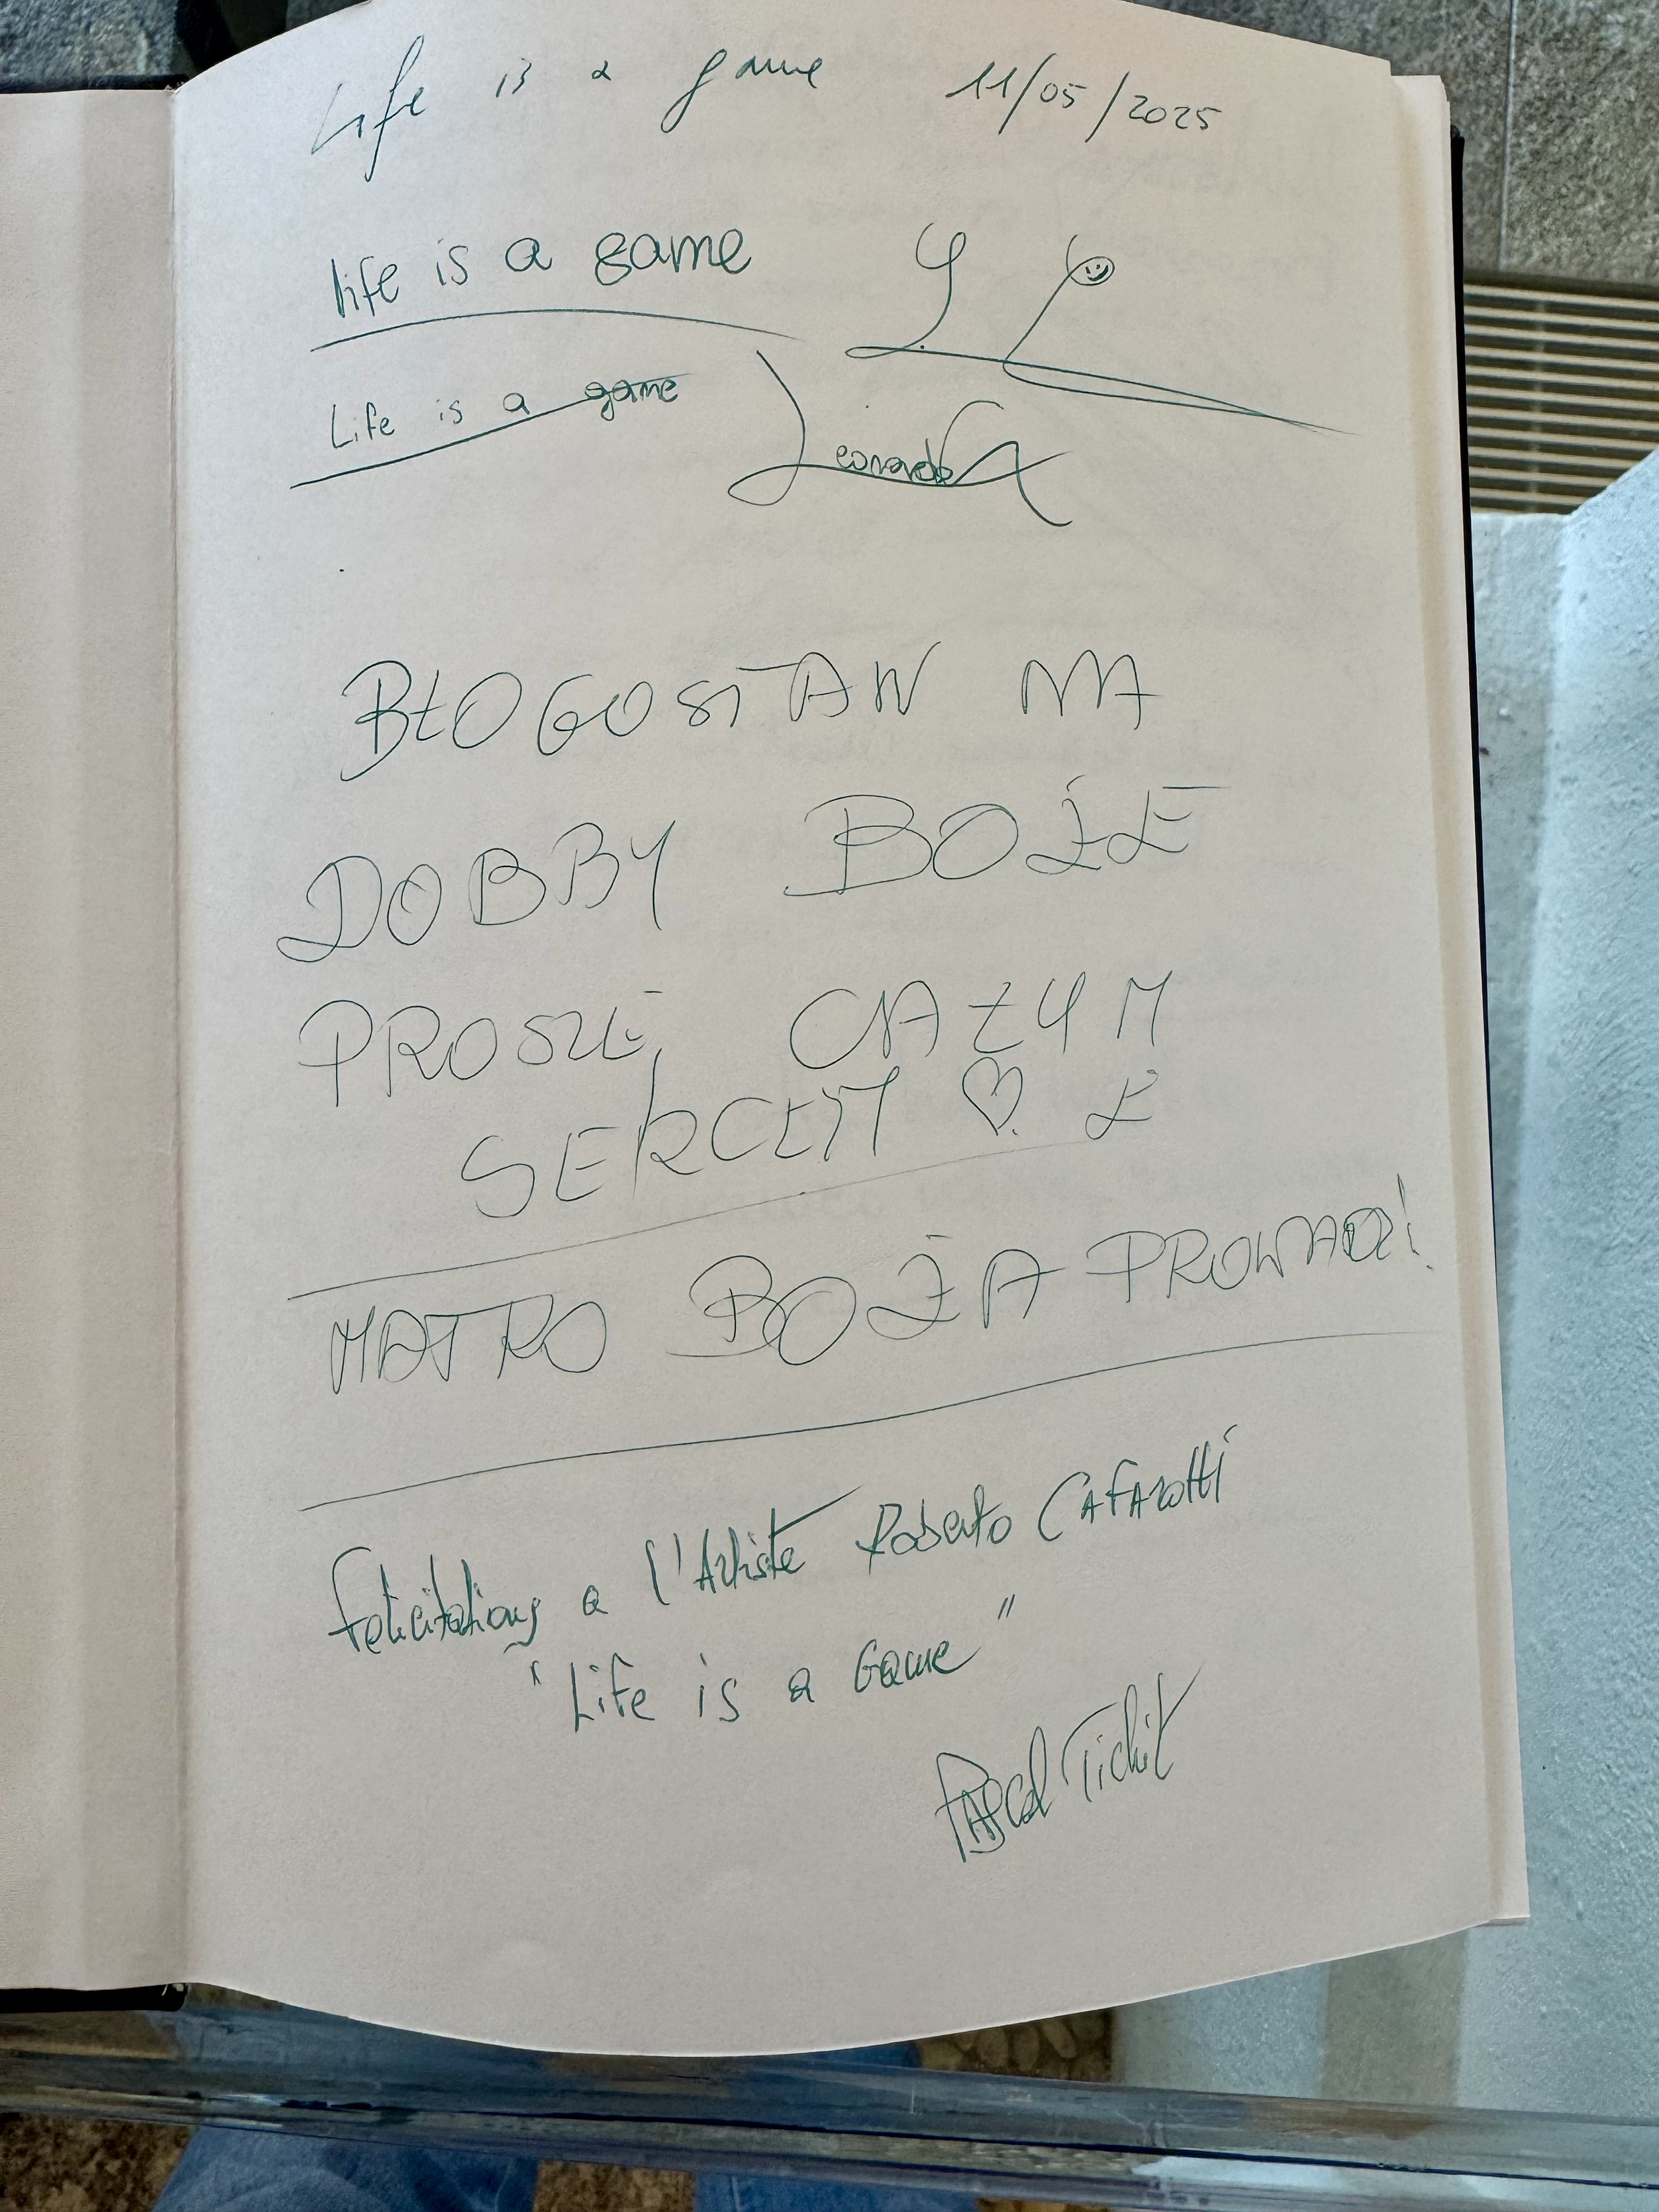 Life is a game 11/05/2025
life is a game
Life is a game Leonardo
BŁOGOSTAW NA
DOBBY BOŻE
PROSZĘ CAŁYM
SERCEM ♡
MATKO BOŻA PROWADZ!
Felicitations a l'Artiste Roberto CAFAROTTI
"Life is a Game"
PASCAL Tichit